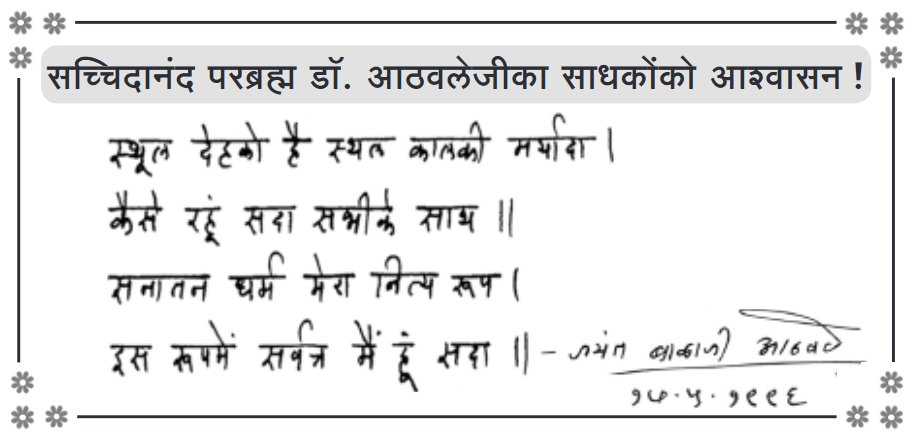 सच्चिदानंद परब्रह्म डॉ. आठवलेजीका साधकोंको आश्वासन !
स्थूल देहको है स्थल कालकी मर्यादा ।
कैसे रहूं सदा सभीके साथ ॥
सनातन धर्म मेरा नित्य रूप ।
इस रूपमें सर्वत्र मैं हूं सदा ॥ - जयंत बाळाजी आठवले
१५.५.१९९६